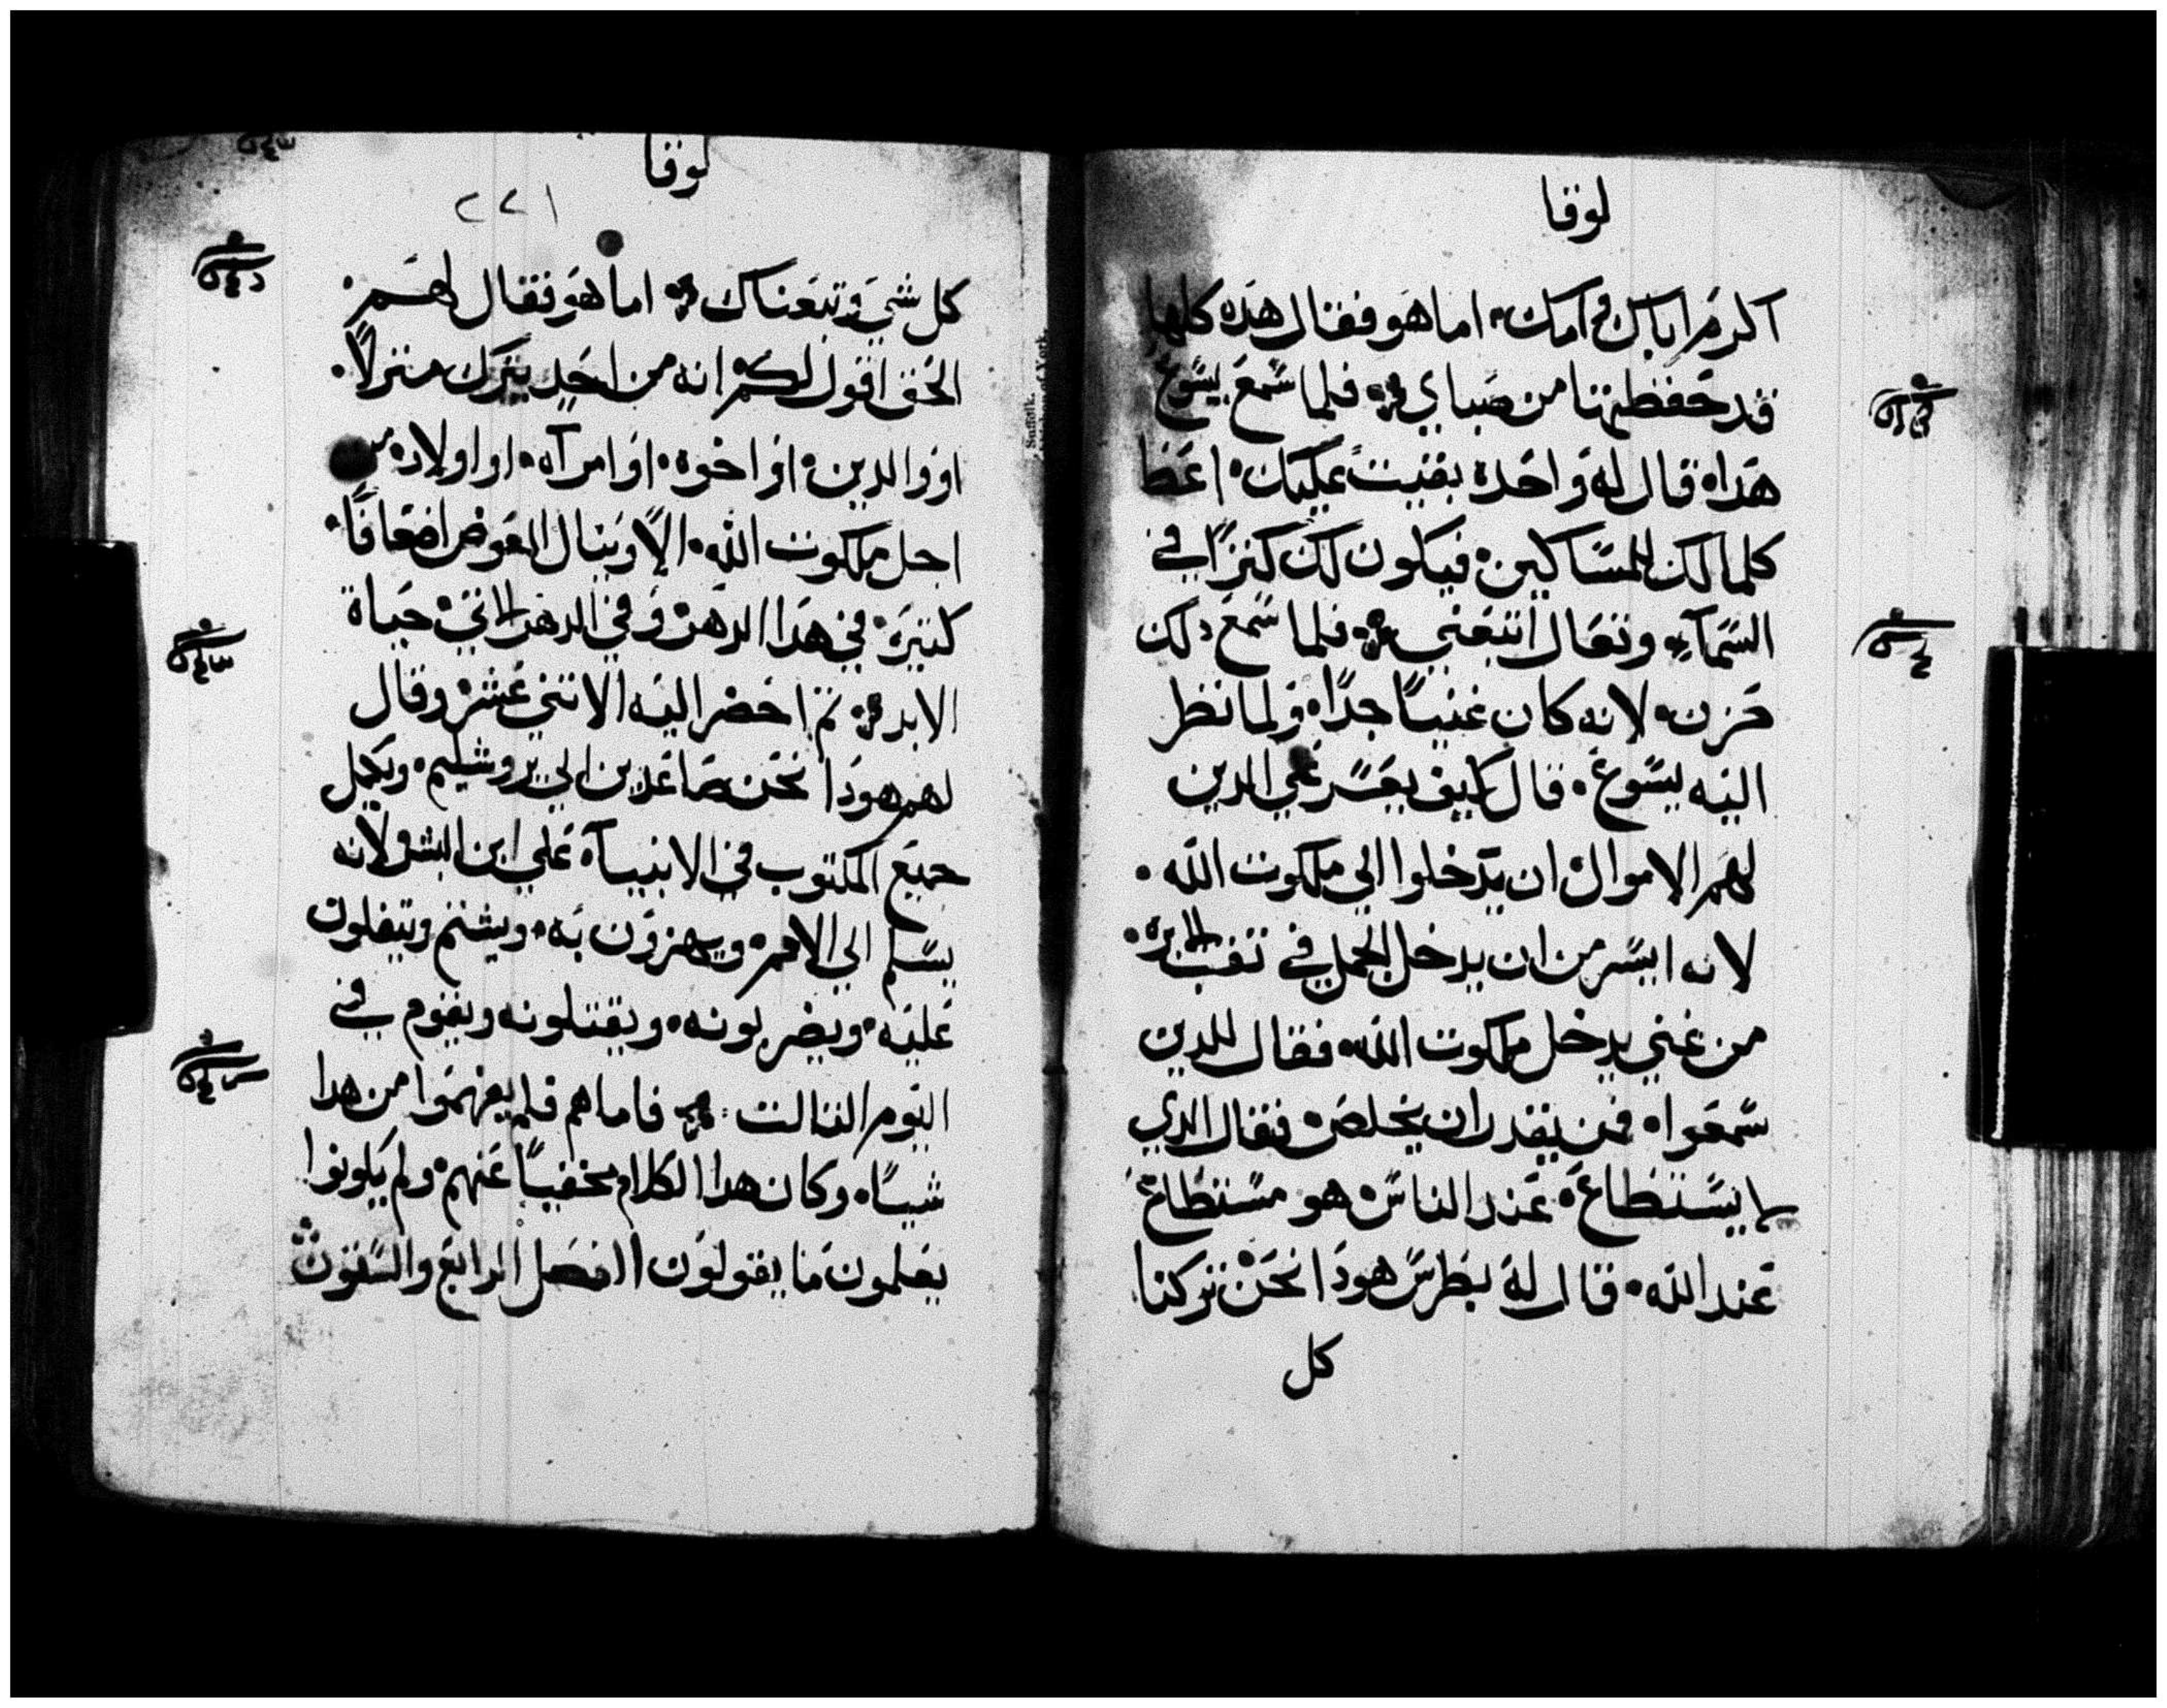 لوقا
اكرم اباك و امك اما هو فقال هده كلها
قد حفظتها من صباي فلما سمع يسوع
هدا قال له واحدة بقيت عليك اعط
كلما لك للمساكين فيكون لك كنزًا في
السمآء وتعال اتبعني فلما سمع دلك
حزن لانه كان غنيًا جدًا ولما نظر
اليه يسوع قال كيف يعسر علي الدين
لهم الاموال ان يدخلوا الي ملكوت الله
لانه ايسر من ان يدخل الجمل في تقب الابره
من غني يدخل ملكوت الله فقال للدين
سمعوا فمن يقدر ان يخلص فقال الدي
لا يستطاع عند الناس هو مستطاع
عند الله قال له بطرس هودا نحن تركنا
كل
لوقا
٢٢١
كل شي وتبعناك اما هو فقال لهم
الحق اقول لكم انه من احد يترك منزلاً
او والدين او اخوة او امرآه او اولاده من
اجل ملكوت الله الا وينال العوض اضعافًا
كتيرة في هدا الدهر و في الدهر الاتي حياة
الابد تم احضر اليه الاتني عشر وقال
لهم هودا نحن صاعدين الي يروشليم ويكمل
جميع المكتوب في الانبيآء علي ابن البشر لانه
يسلم الي الامم ويهزون به ويشتم ويتفلون
عليه ويضربونه ويقتلونه ويقوم في
اليوم التالت فاما هم فلم يفهموا من هدا
شيًا وكان هدا الكلام مخفيًا عنهم ولم يكونوا
يعلمون ما يقولون الفصل الرابع والستون